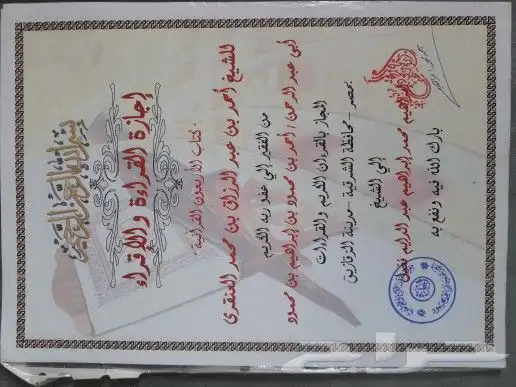 بسم الله الرحمن الرحيم
إجازة القراءة والإقراء
لكتاب الأربعون القرآنية
للشيخ أحمد بن عبد الرزاق بن محمد العنقري
من الفقير إلى عفو ربه الكريم
أبي عبد الرحمن / أحمد بن محمود بن إبراهيم بن محمود
المجاز بالقرءان الكريم والقراءات
بمصر - محافظة الشرقية - مدينة الزقازيق
إلى الشيخ
إبراهيم محمد إبراهيم عبد الدايم
بارك الله فيه ونفع به
حراج